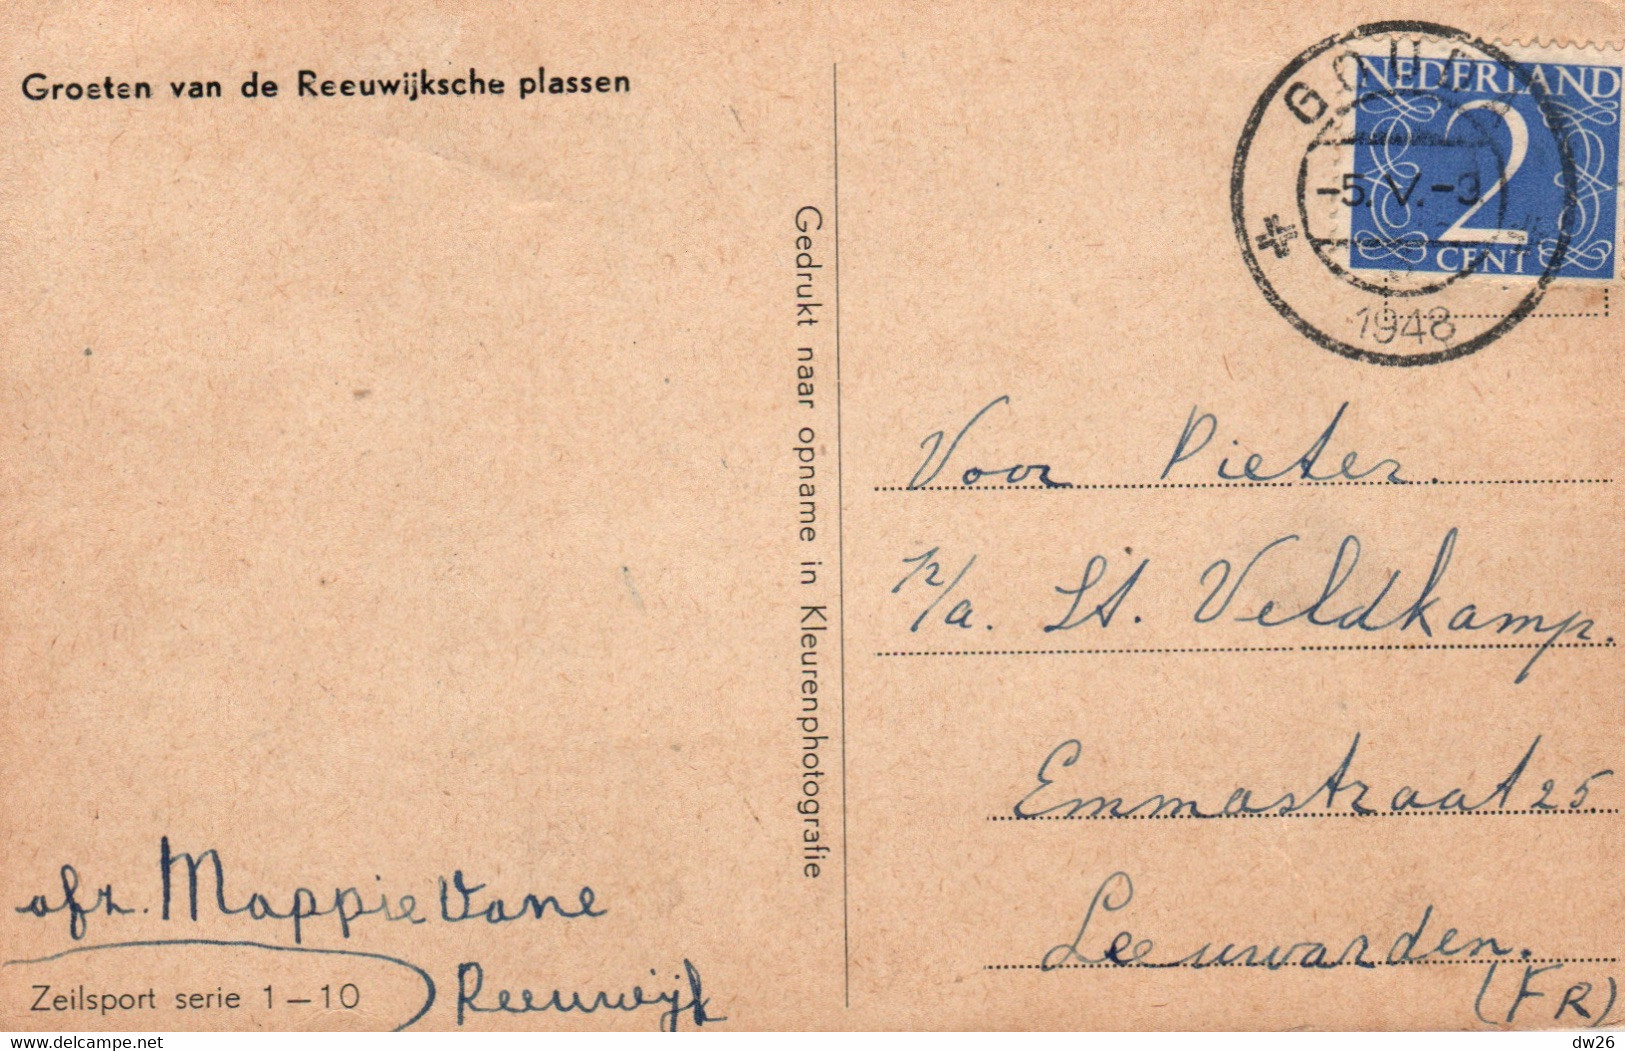 Groeten van de Reeuwijksche plassen
GOUDA
-5.V.-9
1948
NEDERLAND
2
CENT
Gedrukt naar opname in Kleurenphotografie
Voor Pieter.
p/a. St. Veldkamp.
Emmastraat 25.
Leeuwarden.
(FR)
afz. Mappie Vane
Reeuwijk
Zeilsport serie 1-10
delcampe.net
dw26